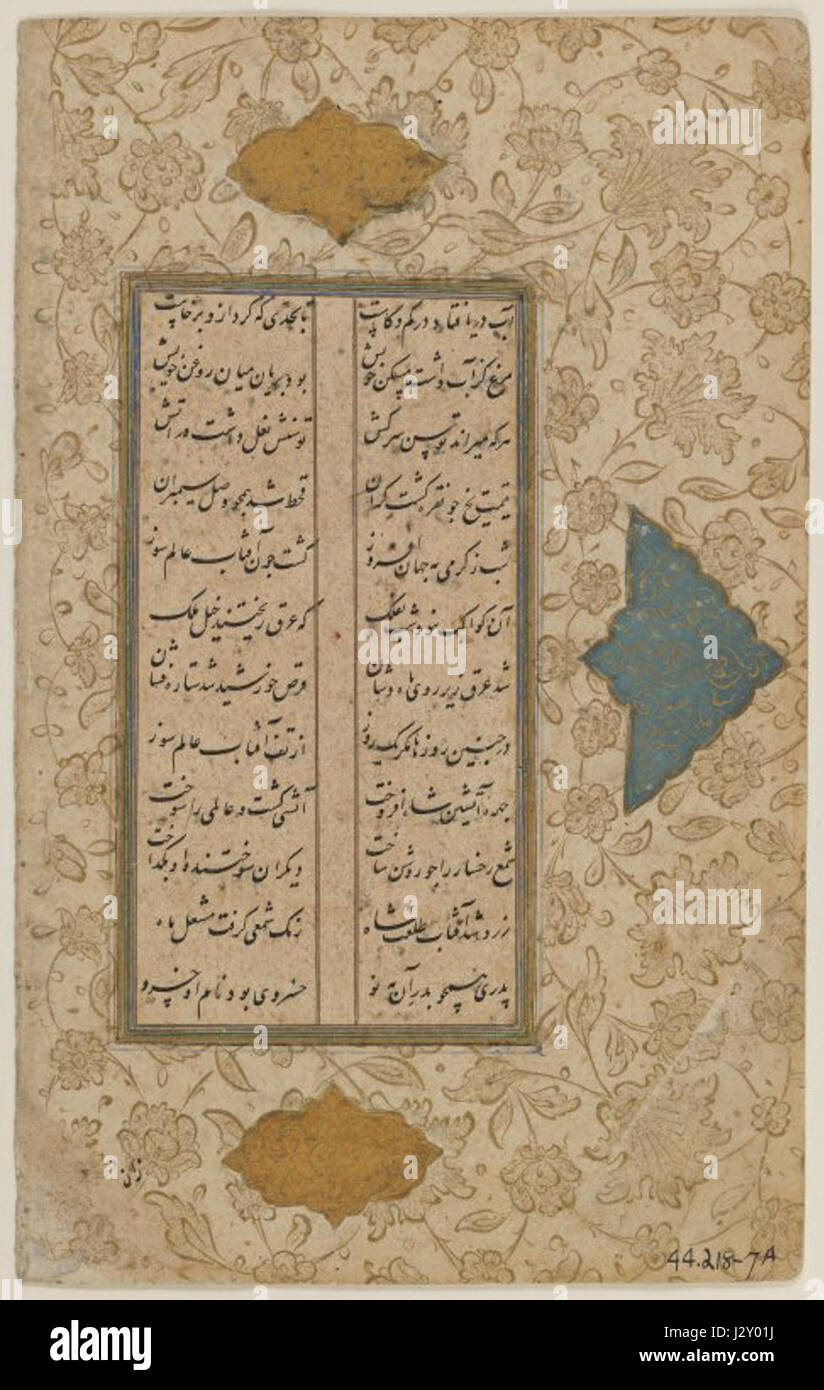 آب دریا فتاد در کم و کاست تا بحدی که گرد ازو برخاست
مرغ کز آب داشت مسکن خویش بود بریان میان روغن خویش
هر که میراند توسن سرکش توسنش نعل داشت در آتش
قیمت یخ چو نقره گشت گران قحط شد همچو وصل سیمبران
شب ز گرمی به جهان افروز گشت چون آفتاب عالم سوز
آن کواکب نبود شب بفلک که عرق ریختند خیل ملک
شد عرق ریز روی ماه وشان قرص خورشید شد ستاره فشان
در چنین روزها مگر یک روز از تف آفتاب عالم سوز
چهره آتشین شاه افروخت آتشی گشت و عالمی را سوخت
شمع رخسار را چو روشن ساخت دیگران سوختند و بگداخت
زرد شد آفتاب طلعت شاه رنک شمعی گرفت مشعل ماه
پدری همچو بدر آن مه نو خسروی بود نام او خسرو
44.218-7A
alamy
alamy
Image ID: J2Y01J
www.alamy.com